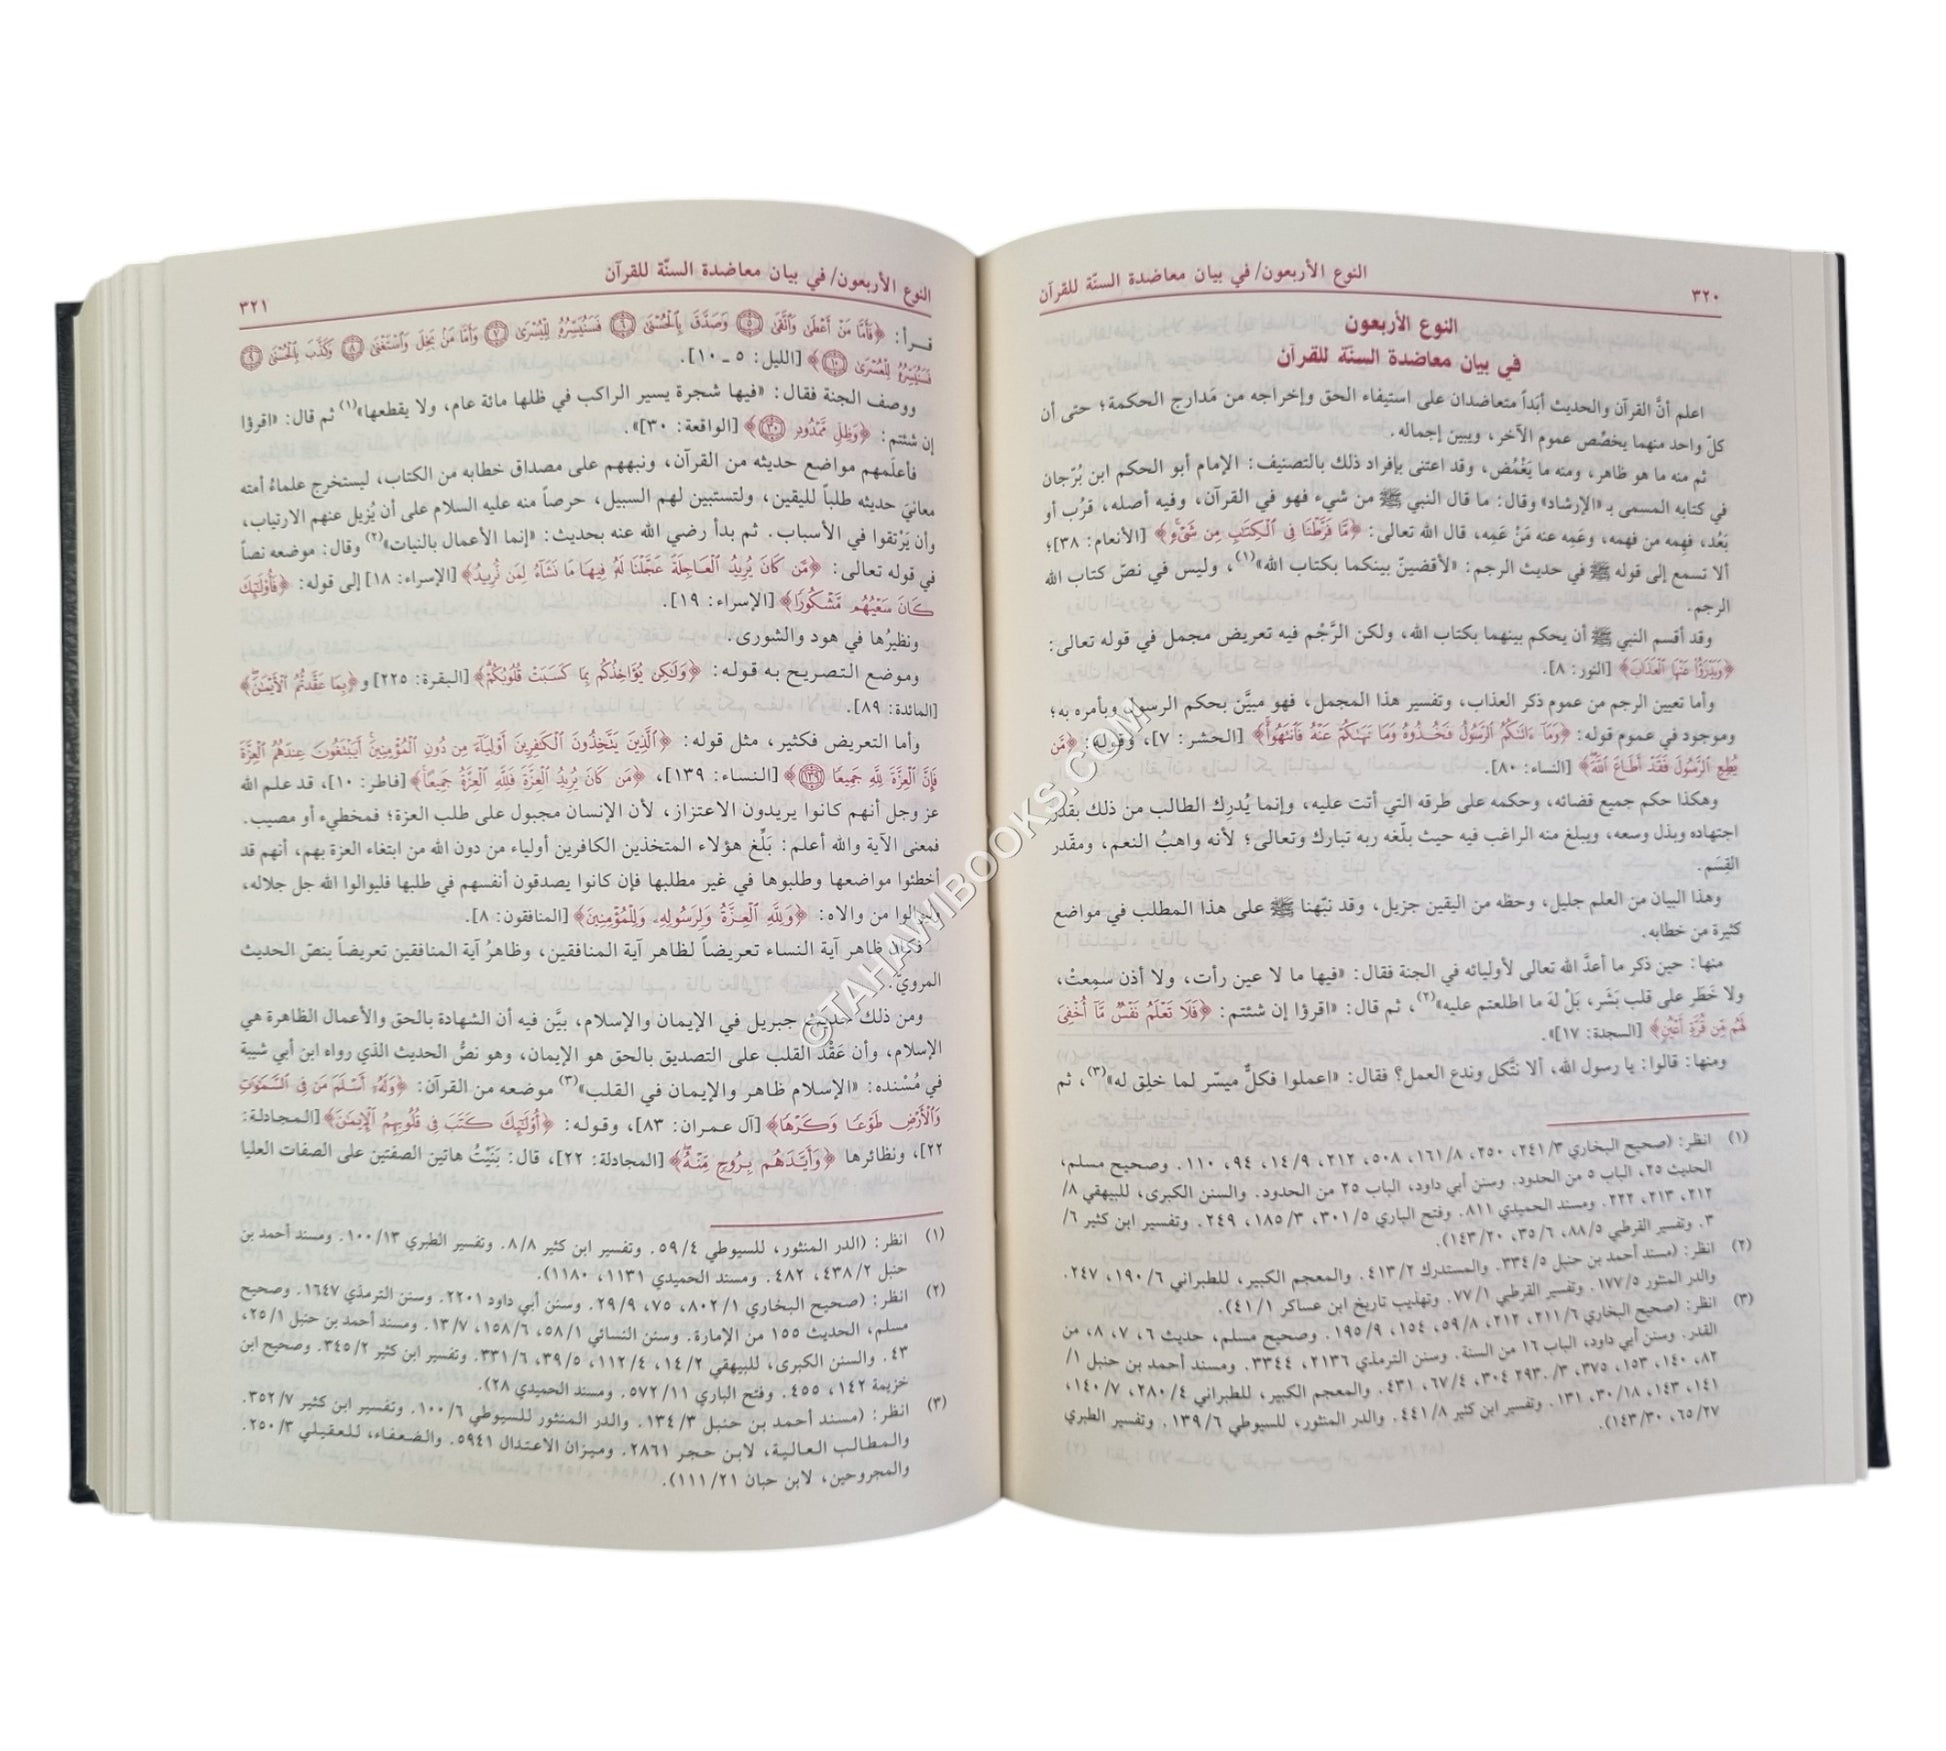 النوع الأربعون/ في بيان معاضدة السنّة للقرآن
٣٢٠
النوع الأربعون
في بيان معاضدة السنّة للقرآن
اعلم أنَّ القرآن والحديث أبَداً متعاضدان على استيفاء الحق وإخراجه من مَدارج الحكمة؛ حتى أن
كلّ واحد منهما يخصِّص عموم الآخر، ويبين إجماله.
ثم منه ما هو ظاهر، ومنه ما يَغْمُض، وقد اعتنى بإفراد ذلك بالتصنيف: الإمام أبو الحكم ابن بُرّجان
في كتابه المسمى بـ «الإرشاد» وقال: ما قال النبي ﷺ من شيء فهو في القرآن، وفيه أصله، قرُب أو
بَعُد، فهِمه من فهمه، وعَمِه عنه مَنْ عَمِه، قال الله تعالى: ﴿مَّا فَرَّطْنَا فِى ٱلْكِتَٰبِ مِن شَىْءٍ﴾ [الأنعام: ٣٨]؛
ألا تسمع إلى قوله ﷺ في حديث الرجم: «لأقضينّ بينكما بكتاب الله»(١)، وليس في نصّ كتاب الله
الرجم.
وقد أقسم النبي ﷺ أن يحكم بينهما بكتاب الله، ولكن الرَّجْم فيه تعريض مجمل في قوله تعالى:
﴿وَيَدْرَؤُا۟ عَنْهَا ٱلْعَذَابَ﴾ [النور: ٨].
وأما تعيين الرجم من عموم ذكر العذاب، وتفسير هذا المجمل، فهو مبيَّن بحكم الرسول وبأمره به؛
وموجود في عموم قوله: ﴿وَمَآ ءَاتَىٰكُمُ ٱلرَّسُولُ فَخُذُوهُ وَمَا نَهَىٰكُمْ عَنْهُ فَٱنتَهُوا۟﴾ [الحشر: ٧]، وقوله: ﴿مَّن
يُطِعِ ٱلرَّسُولَ فَقَدْ أَطَاعَ ٱللَّهَ﴾ [النساء: ٨٠].
وهكذا حكم جميع قضائه، وحكمه على طرقه التي أتت عليه، وإنما يُدرِك الطالب من ذلك بقدر
اجتهاده وبذل وسعه، ويبلغ منه الراغب فيه حيث بلّغه ربه تبارك وتعالى؛ لأنه واهبُ النعم، ومقدّر
القِسَم.
وهذا البيان من العلم جليل، وحظه من اليقين جزيل، وقد نبّهنا ﷺ على هذا المطلب في مواضع
كثيرة من خطابه.
منها: حين ذكر ما أعدَّ الله تعالى لأوليائه في الجنة فقال: «فيها ما لا عين رأت، ولا أذن سمِعتْ،
ولا خَطَر على قلب بَشَر، بَلْهَ ما اطلعتم عليه»(٢)، ثم قال: «اقرؤا إن شئتم: ﴿فَلَا تَعْلَمُ نَفْسٌ مَّآ أُخْفِىَ
لَهُم مِّن قُرَّةِ أَعْيُنٍ﴾ [السجدة: ١٧]».
ومنها: قالوا: يا رسول الله، ألا نتَّكل وندع العمل؟ فقال: «اعملوا فكلٌّ ميسّر لما خلِق له»(٣)، ثم
(١) انظر: (صحيح البخاري ٢٤١/٣، ٢٥٠، ١٦١/٨، ٥٠٨، ٢١٢، ١٤/٩، ٩٤، ١١٠. وصحيح مسلم،
الحديث ٢٥، الباب ٥ من الحدود. وسنن أبي داود، الباب ٢٥ من الحدود. والسنن الكبرى، للبيهقي ٨/
٢١٢، ٢١٣، ٢٢٢. ومسند الحميدي ٨١١. وفتح الباري ٣٠١/٥، ١٨٥/٣، ٢٤٩. وتفسير ابن كثير ٦/
٣. وتفسير القرطبي ٨٨/٥، ٣٥/٦، ١٤٣/٢٠).
(٢) انظر: (مسند أحمد بن حنبل ٣٣٤/٥. والمستدرك ٤١٣/٢. والمعجم الكبير، للطبراني ١٩٠/٦، ٢٤٧.
والدر المنثور ١٧٧/٥. وتفسير القرطبي ٧٧/١. وتهذيب تاريخ ابن عساكر ٤١/١).
(٣) انظر: (صحيح البخاري ٢١١/٦، ٢١٢، ٥٩/٨، ١٥٤، ١٩٥/٩. وصحيح مسلم، حديث ٦، ٧، ٨، من
القدر. وسنن أبي داود، الباب ١٦ من السنة. وسنن الترمذي ٢١٣٦، ٣٣٤٤. ومسند أحمد بن حنبل ١/
٨٢، ١٤٠، ١٥٣، ٣٧٥، ٣/. ٢٩٣ ٣٠٤، ٦٧/٤، ٤٣١. والمعجم الكبير، للطبراني ٢٨٠/٤، ١٤٠/٧،
١٤١، ١٤٣، ٣٠/١٨، ١٣١. وتفسير ابن كثير ٤٤١/٨. والدر المنثور، للسيوطي ١٣٩/٦. وتفسير الطبري
٦٥/٢٧، ١٤٣/٣٠).
النوع الأربعون/ في بيان معاضدة السنّة للقرآن
٣٢١
قرأ: ﴿فَأَمَّا مَنْ أَعْطَىٰ وَٱتَّقَىٰ ۝٥ وَصَدَّقَ بِٱلْحُسْنَىٰ ۝٦ فَسَنُيَسِّرُهُۥ لِلْيُسْرَىٰ ۝٧ وَأَمَّا مَنۢ بَخِلَ وَٱسْتَغْنَىٰ ۝٨ وَكَذَّبَ بِٱلْحُسْنَىٰ ۝٩
فَسَنُيَسِّرُهُۥ لِلْعُسْرَىٰ ۝١٠﴾ [الليل: ٥ ـ ١٠].
ووصف الجنة فقال: «فيها شجرة يسير الراكب في ظلها مائة عام، ولا يقطعها»(١) ثم قال: «اقرؤا
إن شئتم: ﴿وَظِلٍّ مَّمْدُودٍ ۝٣٠﴾ [الواقعة: ٣٠]».
فأعلَمهم مواضع حديثه من القرآن، ونبههم على مصداق خطابه من الكتاب، ليستخرج علماءُ أمته
معانيَ حديثه طلباً لليقين، ولتستبين لهم السبيل، حرصاً منه عليه السلام على أن يُزيل عنهم الارتياب،
وأن يَرْتقوا في الأسباب. ثم بدأ رضي الله عنه بحديث: «إنما الأعمال بالنيات»(٢) وقال: موضعه نصاً
في قوله تعالى: ﴿مَّن كَانَ يُرِيدُ ٱلْعَاجِلَةَ عَجَّلْنَا لَهُۥ فِيهَا مَا نَشَآءُ لِمَن نُّرِيدُ﴾ [الإسراء: ١٨] إلى قوله: ﴿فَأُو۟لَٰٓئِكَ
كَانَ سَعْيُهُم مَّشْكُورًا﴾ [الإسراء: ١٩].
ونظيرُها في هود والشورى.
وموضع التصريح به قوله: ﴿وَلَٰكِن يُؤَاخِذُكُم بِمَا كَسَبَتْ قُلُوبُكُمْ﴾ [البقرة: ٢٢٥] و﴿بِمَا عَقَّدتُّمُ ٱلْأَيْمَٰنَ﴾
[المائدة: ٨٩].
وأما التعريض فكثير، مثل قوله: ﴿ٱلَّذِينَ يَتَّخِذُونَ ٱلْكَٰفِرِينَ أَوْلِيَآءَ مِن دُونِ ٱلْمُؤْمِنِينَ أَيَبْتَغُونَ عِندَهُمُ ٱلْعِزَّةَ
فَإِنَّ ٱلْعِزَّةَ لِلَّهِ جَمِيعًا ۝١٣٩﴾ [النساء: ١٣٩]، ﴿مَن كَانَ يُرِيدُ ٱلْعِزَّةَ فَلِلَّهِ ٱلْعِزَّةُ جَمِيعًا﴾ [فاطر: ١٠]، قد علم الله
عز وجل أنهم كانوا يريدون الاعتزاز، لأن الإنسان مجبول على طلب العزة؛ فمخطيء أو مصيب.
فمعنى الآية والله أعلم: بَلِّغ هؤلاء المتخذين الكافرين أولياء من دون الله من ابتغاء العزة بهم، أنهم قد
أخطئوا مواضعها وطلبوها في غير مطلبها فإن كانوا يصدقون أنفسهم في طلبها فليوالوا الله جل جلاله،
وليوالوا من والاه: ﴿وَلِلَّهِ ٱلْعِزَّةُ وَلِرَسُولِهِۦ وَلِلْمُؤْمِنِينَ﴾ [المنافقون: ٨].
فكان ظاهر آية النساء تعريضاً لظاهر آية المنافقين، وظاهرُ آية المنافقين تعريضاً بنصّ الحديث
المرويّ.
ومن ذلك حديث جبريل في الإيمان والإسلام، بيَّن فيه أن الشهادة بالحق والأعمال الظاهرة هي
الإسلام، وأن عَقْد القلب على التصديق بالحق هو الإيمان، وهو نصُّ الحديث الذي رواه ابن أبي شيبة
في مُسْنده: «الإسلام ظاهر والإيمان في القلب»(٣) موضعه من القرآن: ﴿وَلَهُۥٓ أَسْلَمَ مَن فِى ٱلسَّمَٰوَٰتِ
وَٱلْأَرْضِ طَوْعًا وَكَرْهًا﴾ [آل عمران: ٨٣]، وقوله: ﴿أُو۟لَٰٓئِكَ كَتَبَ فِى قُلُوبِهِمُ ٱلْإِيمَٰنَ﴾ [المجادلة:
٢٢]، ونظائرها ﴿وَأَيَّدَهُم بِرُوحٍ مِّنْهُ﴾ [المجادلة: ٢٢]، قال: بَنَيْتُ هاتين الصفتين على الصفات العليا
(١) انظر: (الدر المنثور، للسيوطي ٥٩/٤. وتفسير ابن كثير ٨/٨. وتفسير الطبري ١٠٠/١٣. ومسند أحمد بن
حنبل ٤٣٨/٢، ٤٨٢. ومسند الحميدي ١١٣١، ١١٨٠).
(٢) انظر: (صحيح البخاري ٨٠٢/١، ٧٥، ٢٩/٩. وسنن أبي داود ٢٢٠١. وسنن الترمذي ١٦٤٧. وصحيح
مسلم، الحديث ١٥٥ من الإمارة. وسنن النسائي ٥٨/١، ١٥٨/٦، ١٣/٧. ومسند أحمد بن حنبل ٢٥/١،
٤٣. والسنن الكبرى، للبيهقي ١٤/٢، ١١٢/٤، ٣٩/٥، ٣٣١/٦. وتفسير ابن كثير ٣٤٥/٢. وصحيح ابن
خزيمة ١٤٢، ٤٥٥. وفتح الباري ٥٧٢/١١. ومسند الحميدي ٢٨).
(٣) انظر: (مسند أحمد بن حنبل ١٣٤/٣. والدر المنثور للسيوطي ١٠٠/٦. وتفسير ابن كثير ٣٥٢/٧.
والمطالب العالية، لابن حجر ٢٨٦١. وميزان الاعتدال ٥٩٤١. والضعفاء، للعقيلي ٢٥٠/٣.
والمجروحين، لابن حبان ١١١/٢١).
©TAHAWIBOOKS.COM